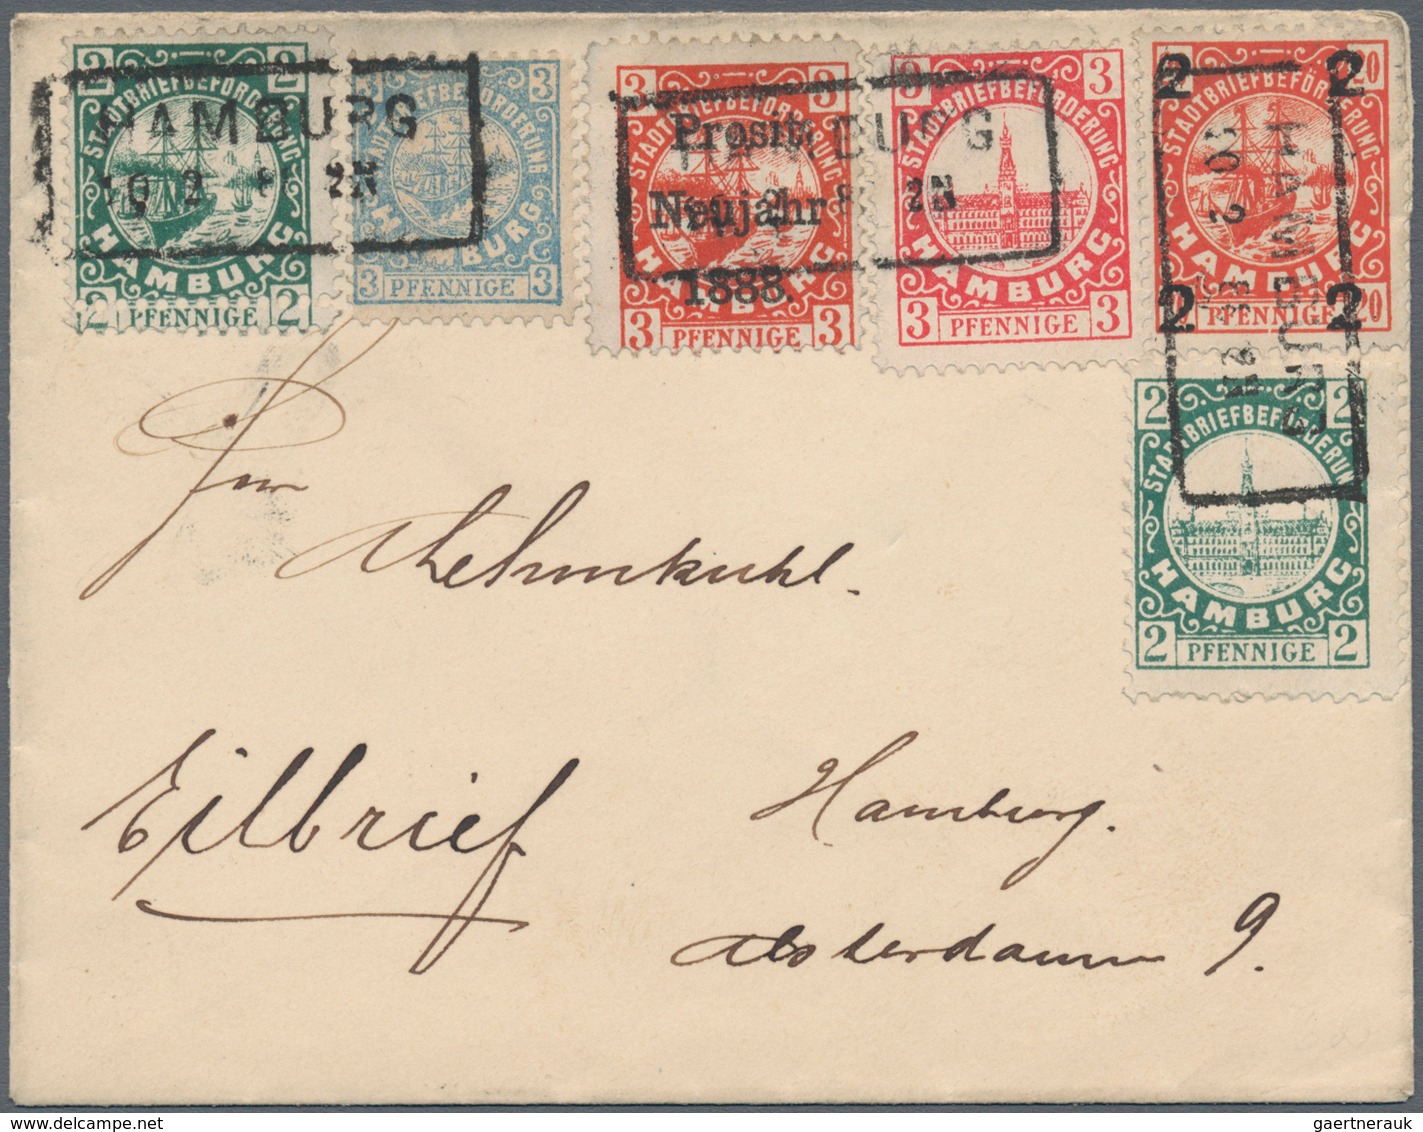 2 2
STADTBRIEFBEFÖRDERUNG
HAMBURG
2 PFENNIGE 2
HAMBURG
2N
3
STADTBRIEFBEFÖRDERUNG
HAMBURG
3 PFENNIGE 3
3 3
STADTBRIEFBEFÖRDERUNG
Prosit
Neujahr
1888.
HAMBURG
3 PFENNIGE 3
HAMBURG
2N
3 3
STADTBRIEFBEFÖRDERUNG
HAMBURG
3 PFENNIGE 3
2 2 20
STADTBRIEFBEFÖRDERUNG
HAMBURG
2 2
PFENNIGE 20
HAMBURG
2N
2 2
STADTBRIEFBEFÖRDERUNG
HAMBURG
2 PFENNIGE 2
Eilbrief
Hamburg.
Alsterdamm 9.
gaertnerauk